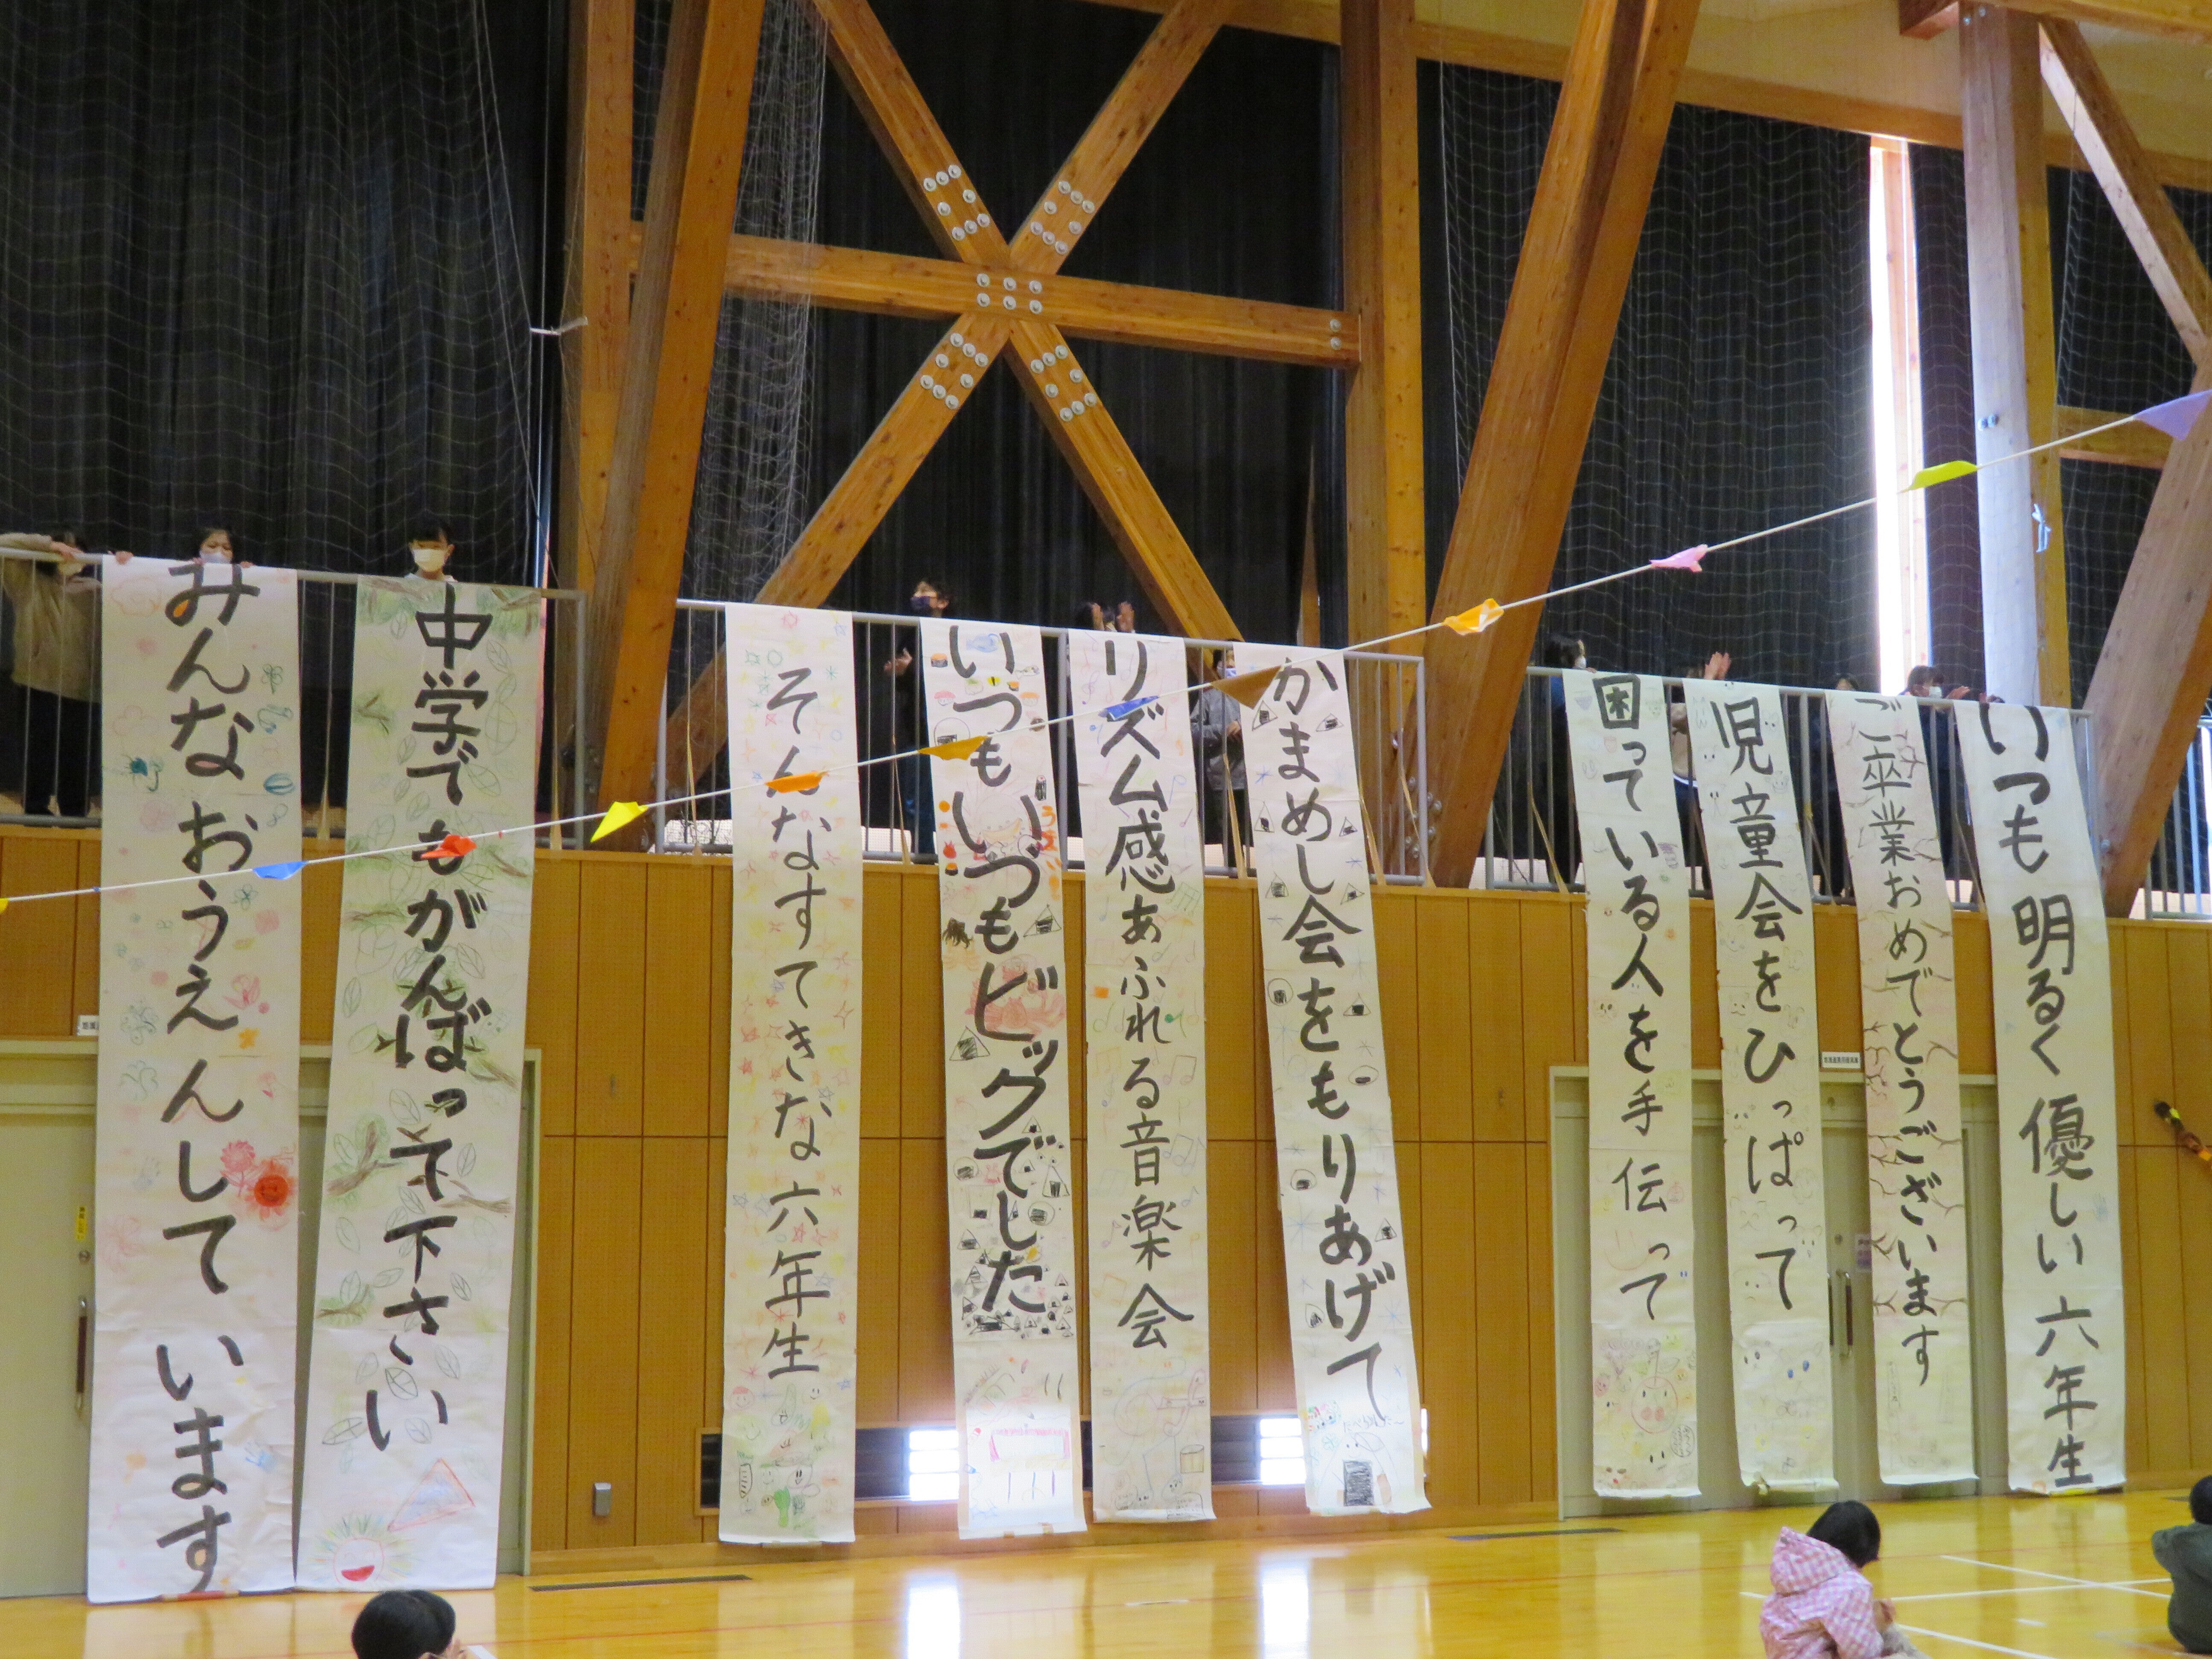 いつも明るく優しい六年生
ご卒業おめでとうございます
児童会をひっぱって
困っている人を手伝って
かまめし会をもりあげて
リズム感あふれる音楽会
いつもいつもビックでした
そんなすてきな六年生
中学でもがんばって下さい
みんなおうえんしています